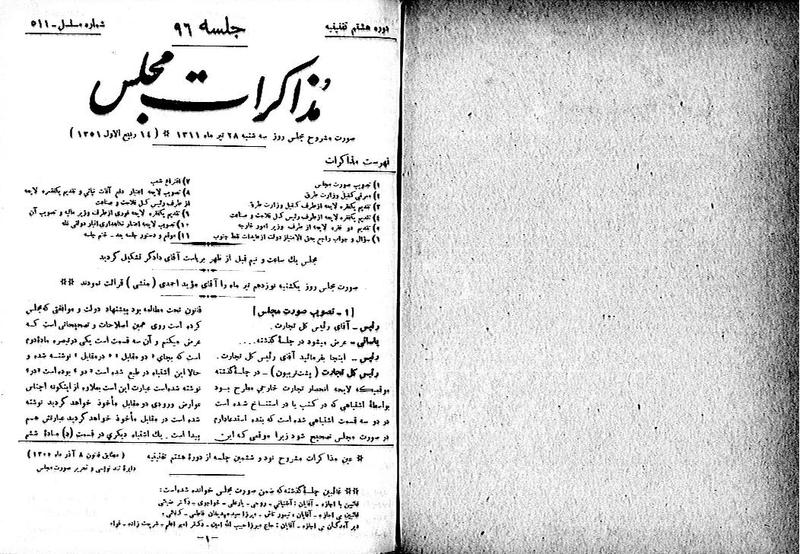 دوره هشتم تقنینیه
جلسه ۹۶
شماره مسلسل - ۵۱۱
مذاکرات مجلس
صورت مشروح مجلس روز سه شنبه ۲۸ تیر ماه ۱۳۱۱ * (۱۴ ربیع الاول ۱۳۵۱)
فهرست مذاکرات
۱) تصویب صورت مجلس
۲) معرفی کفیل وزارت طرق
۳) تقدیم یکفقره لایحه از طرف کفیل وزارت طرق
۴) تقدیم یکفقره لایحه از طرف رئیس کل فلاحت و صناعت
تقدیم دو فقره لایحه از طرف وزیر امور خارجه
۶) سؤال و جواب راجع بحق الامتیاز دولت از عایدات نفط جنوب
۷) اقتراع شعب
۸) تصویب لایحه اعتبار دفع آفات نباتی و تقدیم یکفقره لایحه
از طرف رئیس کل فلاحت و صناعت
۹) تقدیم یکفقره لایحه فوری از طرف وزیر مالیه و تصویب آن
۱۰) تصویب لایحه اعتبار انبار دولتی غله
۱۱) موقع و دستور جلسه بعد - ختم جلسه
مجلس یک ساعت و نیم قبل از ظهر بریاست آقای دادگر تشکیل گردید
صورت مجلس روز یکشنبه نوزدهم تیر ماه را آقای مؤید احمدی (منشی) قرائت نمودند **
[۱ - تصویب صورت مجلس]
رئیس - آقای رئیس کل تجارت.
یاسائی - عرض میشود در جلسهٔ گذشته....
رئیس - اینجا بفرمائید آقای رئیس کل تجارت.
رئیس کل تجارت (پشت تریبون) - در جلسهٔ گذشته
موقعیکه لایحه انحصار تجارت خارجی مطرح بود
بواسطهٔ اشتباهی که در کتب یا در استنساخ شده است
در دو سه قسمت اشتباهی شده است که بنده استدعا دارم
در صورت مجلس تصحیح شود زیرا موقعی که این
قانون تحت مطالعه بود پیشنهاد دولت و موافقتی که مجلس
کرده است روی همین اصلاحات و تصحیحاتی است که
عرض میکنم و آن سه قسمت است یکی در تبصره مادهٔ دوم
است که بجای «و در مقابل» «در مقابل» نوشته شده و
حالا این اشتباه در طبع شده است «و» بوده است «در»
نوشته شده است عبارت این است بعلاوه از اینگونه اجناس
عوارض ورودی در مقابل مأخوذ خواهد گردید نوشته
شده است در مقابل مأخوذ خواهد گردید عبارتش هم
پیدا است. یک اشتباه دیگری در قسمت (د) مادهٔ ششم
* عین مذاکرات مشروح نود و ششمین جلسه از دورهٔ هشتم تقنینیه
(مطابق قانون ۸ آذر ماه ۱۳۰۵)
دایرهٔ تند نویسی و تحریر صورت مجلس
** غائبین جلسهٔ گذشته که ضمن صورت مجلس خوانده شده است:
غائبین با اجازه - آقایان: آشتیانی - روحی - یارعلی - خواجوی - دکتر ضیائی
غائبین بی اجازه - آقایان: تیمورتاش - میرزا سید مهدیخان فاطمی -
دیر آمدگان بی اجازه - آقایان: حاج میرزا حبیب الله امین - دکتر امیر اعلم - شریعت زاده -
-۱-